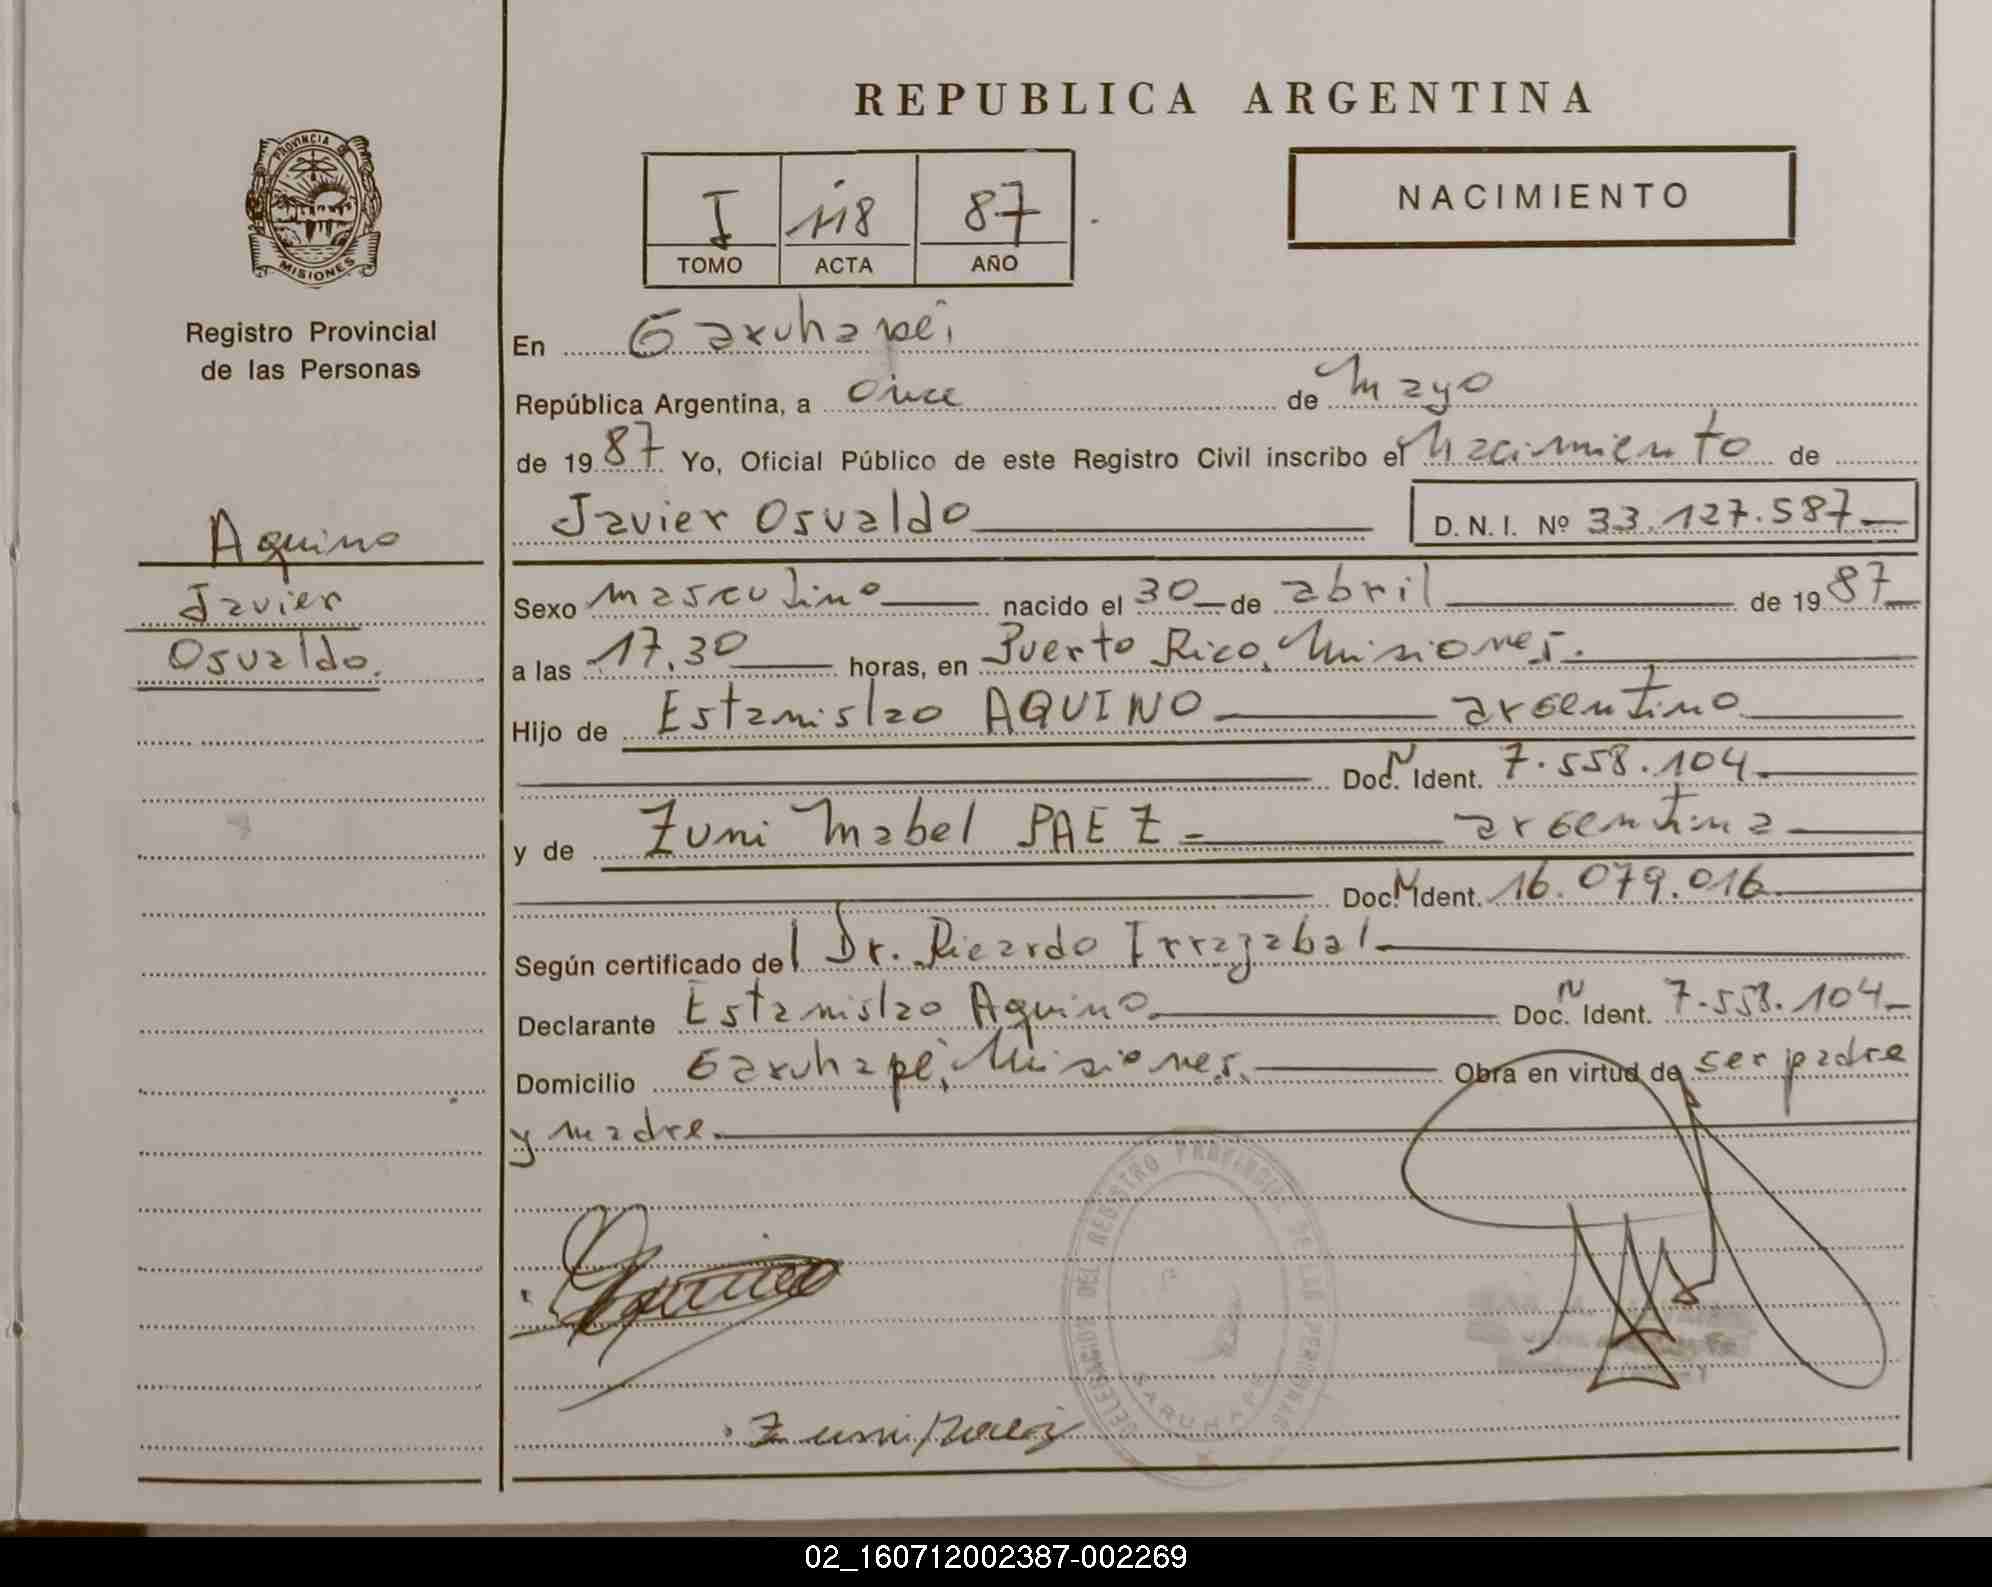 REPUBLICA ARGENTINA
PROVINCIA DE
MISIONES
Registro Provincial
de las Personas
I 118 87
TOMO ACTA AÑO
NACIMIENTO
En Garuhapé,
República Argentina, a once de Mayo
de 1987 Yo, Oficial Público de este Registro Civil inscribo el Nacimiento de
Javier Osvaldo D. N. I. Nº 33.127.587
Aquino
Javier
Osvaldo.
Sexo masculino nacido el 30 de abril de 1987
a las 17.30 horas, en Puerto Rico, Misiones.
Hijo de Estanislao AQUINO argentino
Doc. N Ident. 7.558.104
y de Zuni Mabel PAEZ argentina
Doc. N Ident. 16.079.016
Según certificado del Dr. Ricardo Irrazabal
Declarante Estanislao Aquino Doc. N Ident. 7.558.104
Domicilio Garuhapé, Misiones. Obra en virtud de ser padre
y madre.
DELEGACION DEL REGISTRO PROVINCIAL DE LAS PERSONAS
GARUHAPE
Zuni Paez
02_160712002387-002269